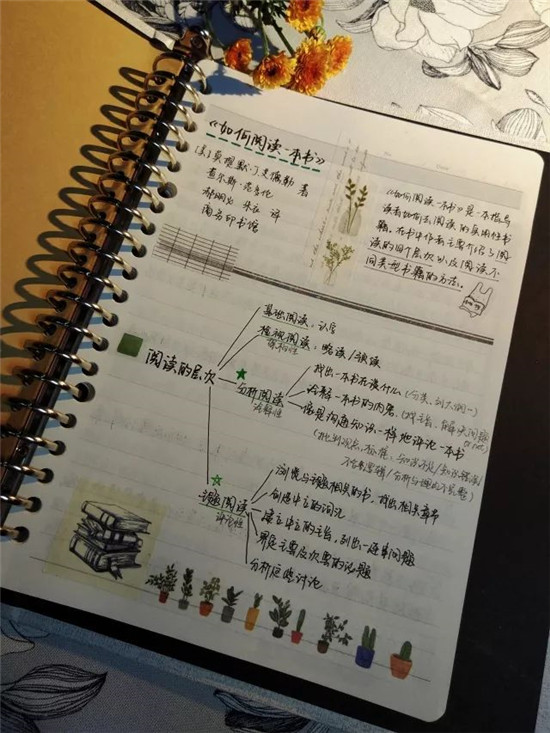 《如何阅读一本书》
[美]莫提默·J.艾德勒 著
查尔斯·范多伦
郝明义 朱衣 译
商务印书馆
《如何阅读一本书》是一本指导
读者如何去阅读的实用性书
籍。在书中作者主要介绍了阅
读的四个层次以及阅读不
同类型书籍的方法。
阅读的层次
基础阅读、认字
检视阅读、略读/
架构性
分析阅读
诠释性
找出一本书在谈什么(分类、列大纲
诠释一本书的内容(找主旨、解决问题
像是沟通知识一样地评论一本书
(批判观点、标准、知识不足/知识错误/
不合逻辑/分析与理由不完整)
主题阅读
评论性
浏览与议题相关的书,找出相关章节
创造中立的词汇
建立中立的主旨,列出一连串问题
界定主要及次要的议题
分析这些讨论